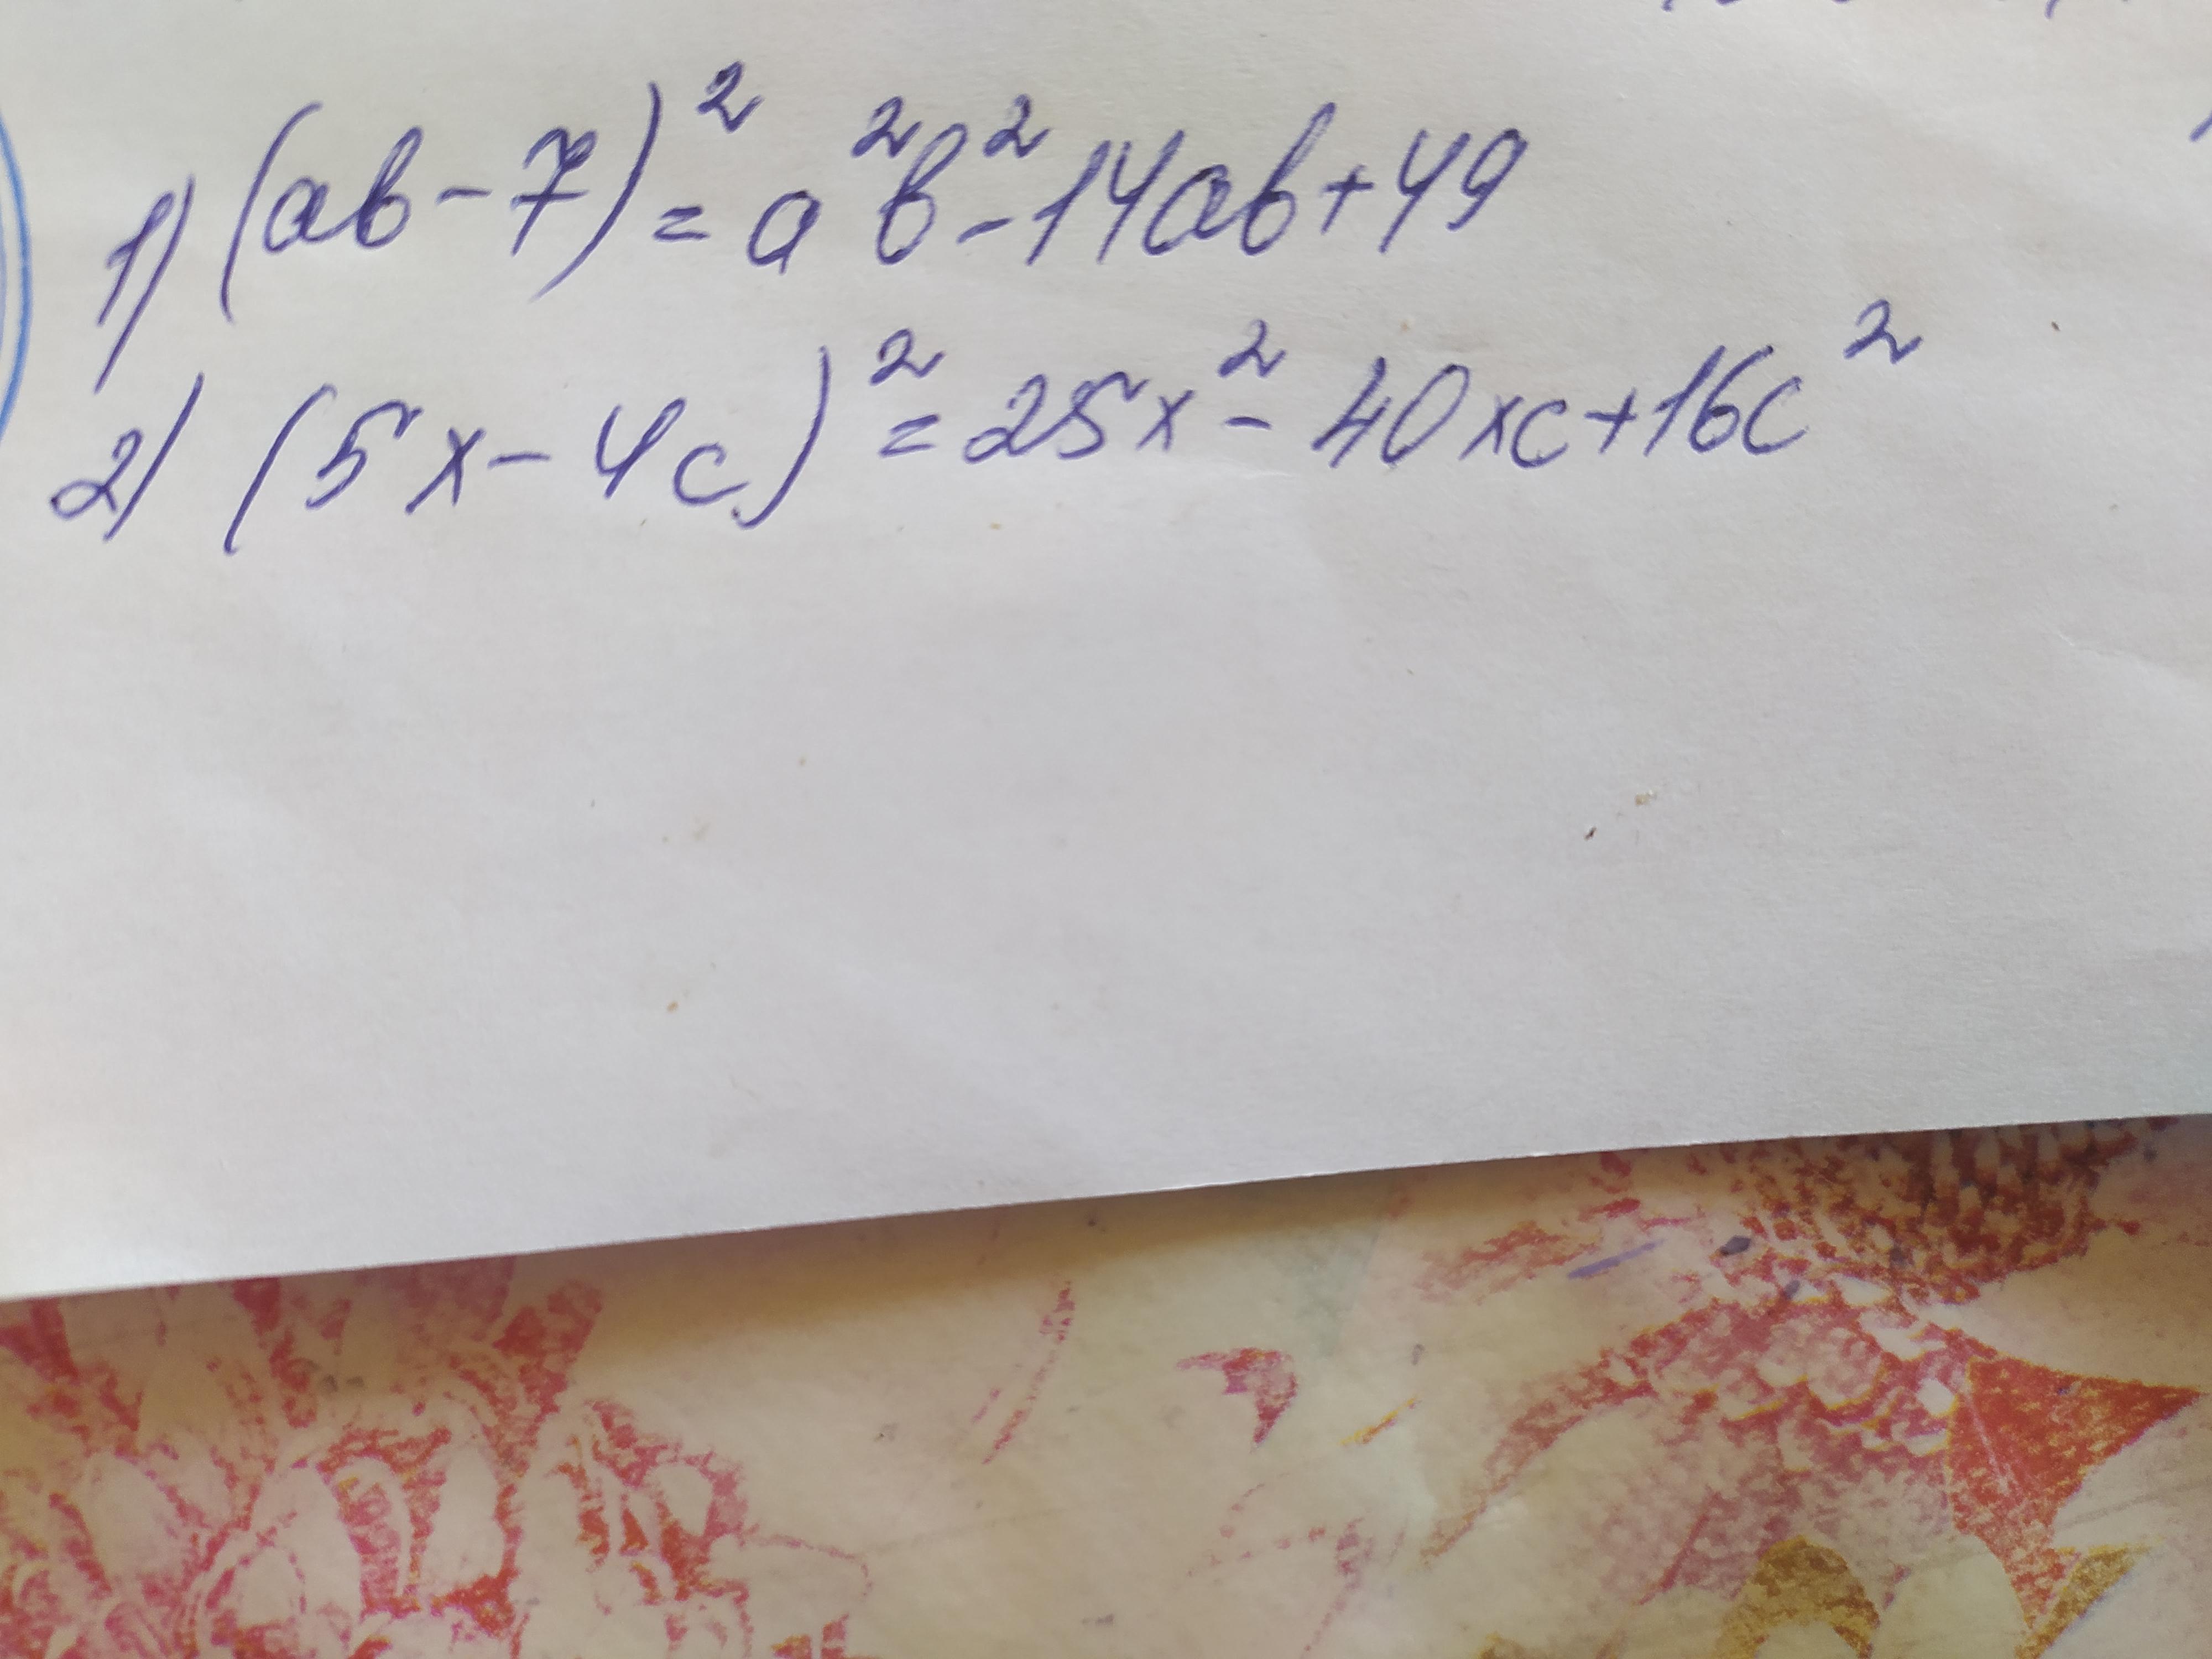 1) (ab-7)² = a²b²-14ab+49
2) (5x-4c)² = 25x²-40xc+16c²